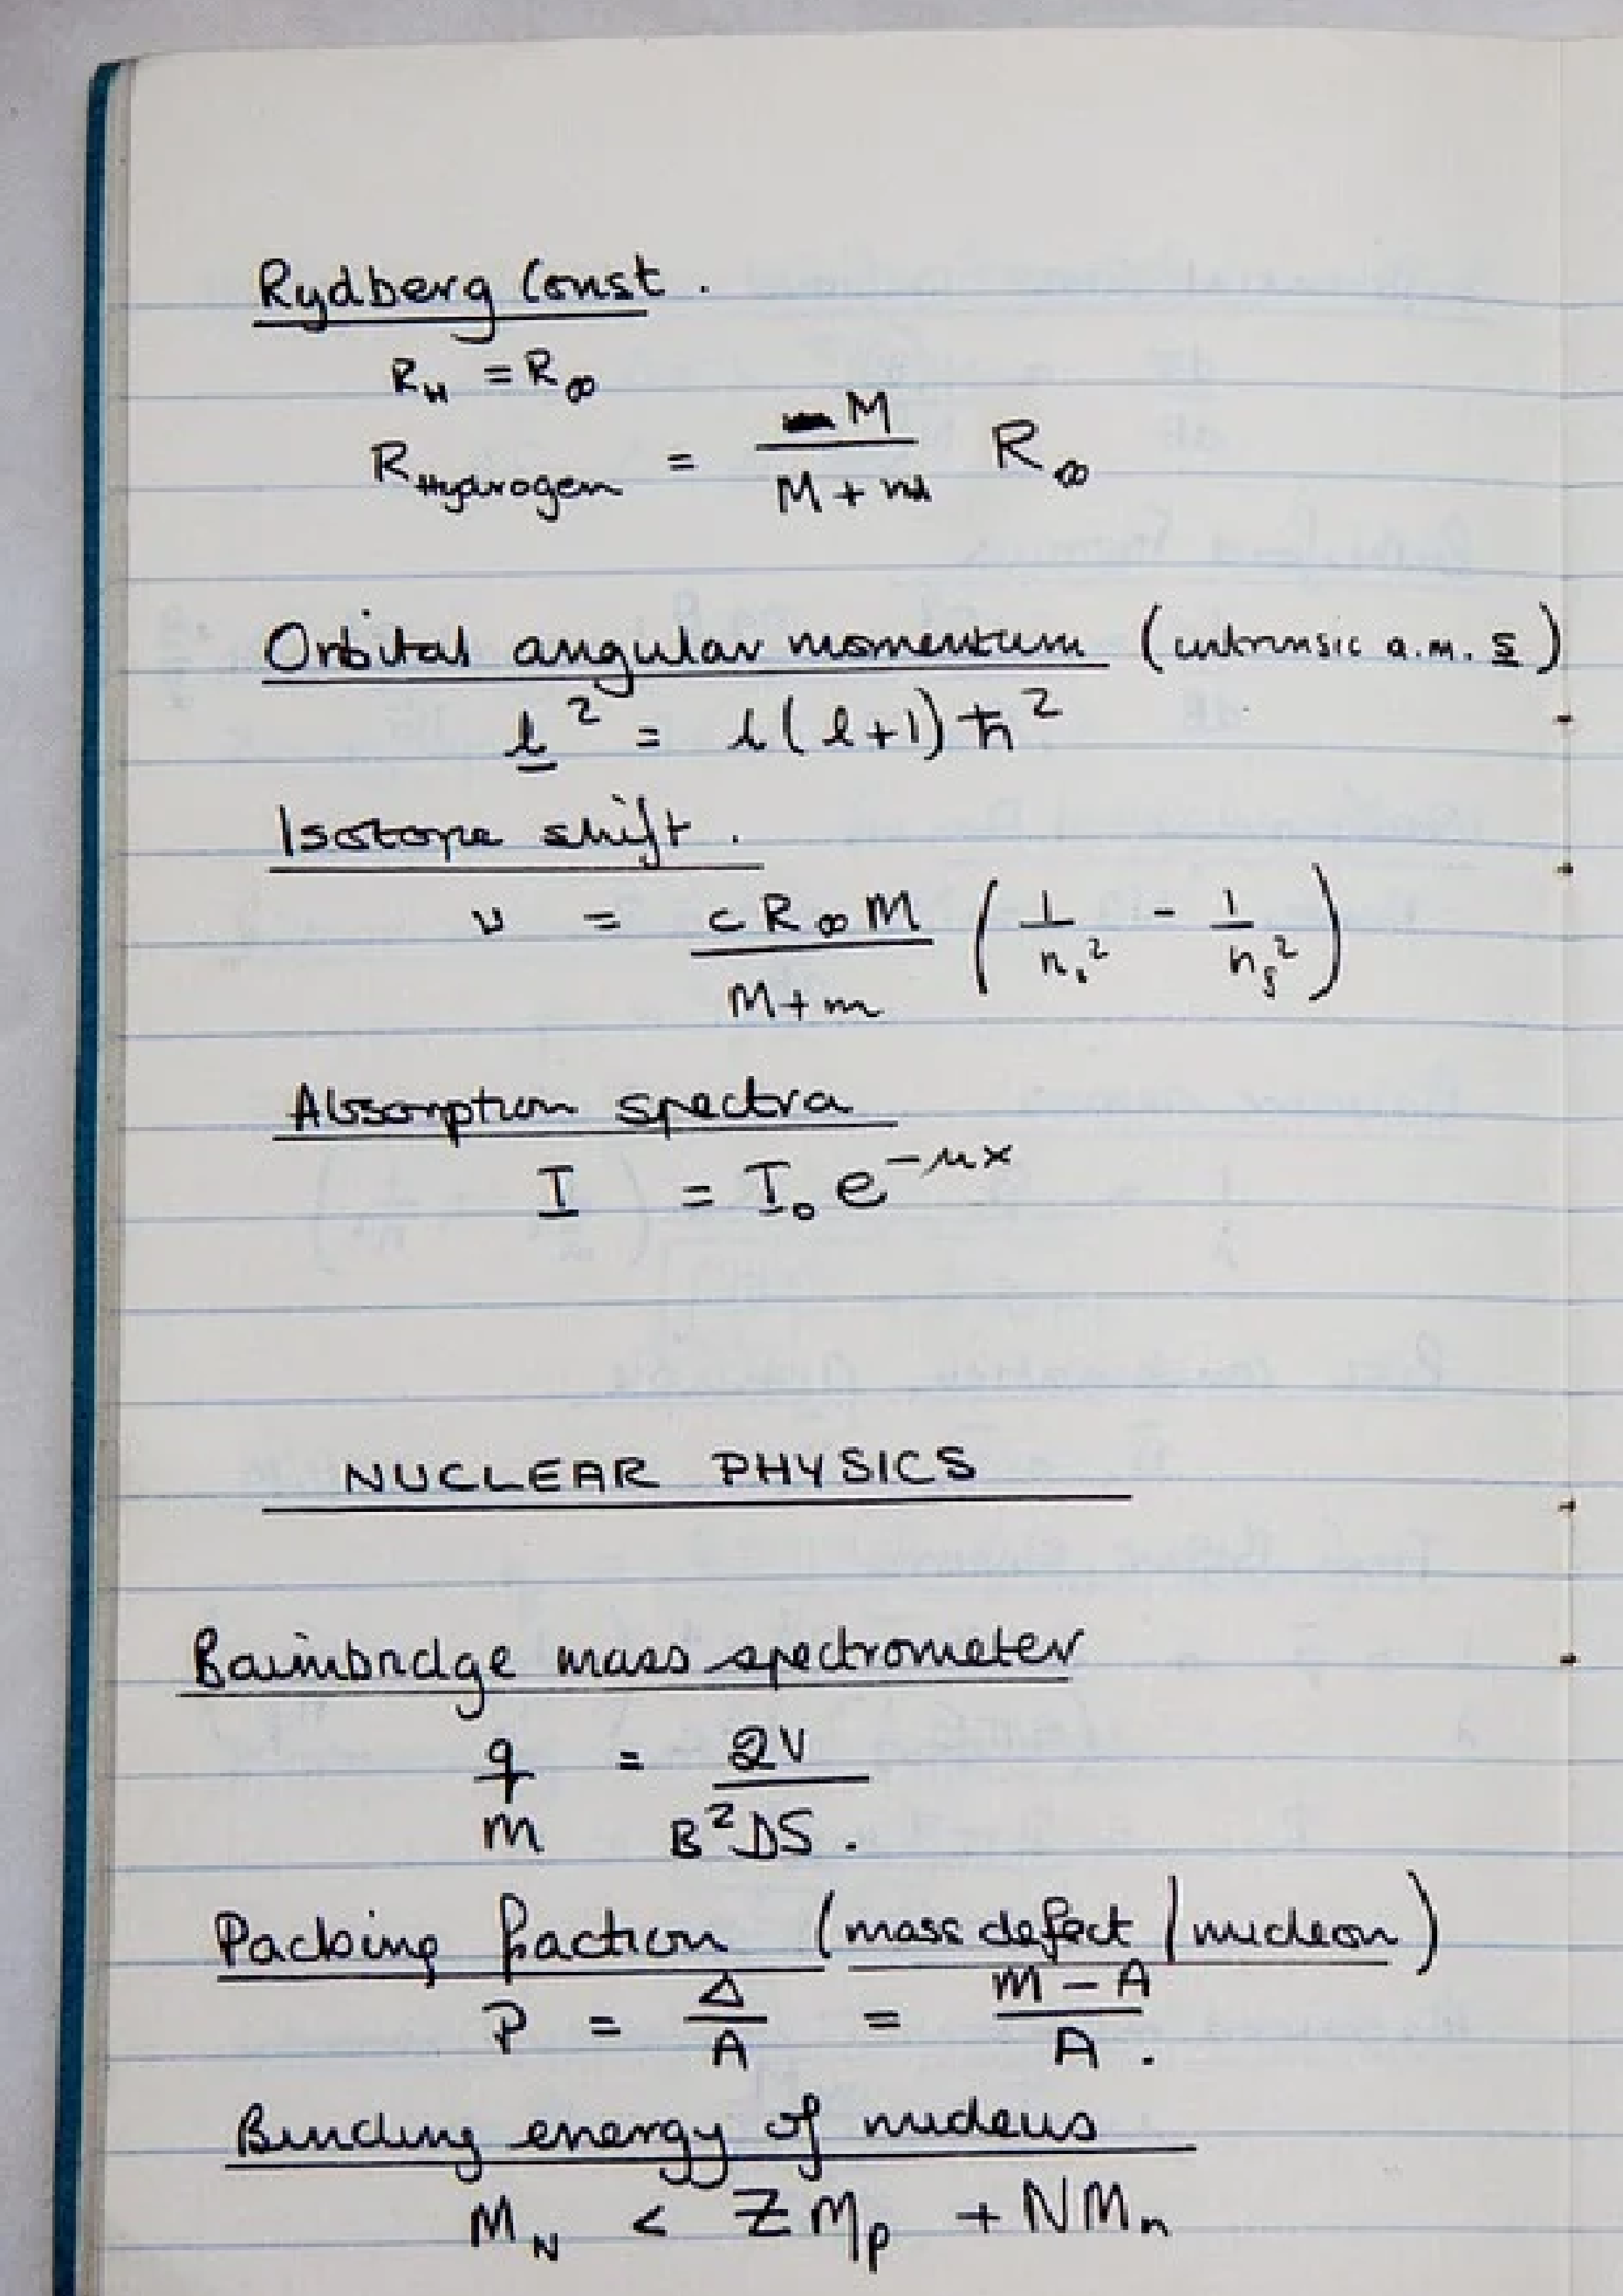 Rydberg Const.
R_H = R_∞
R_Hydrogen = M / (M + m) R_∞
Orbital angular momentum (intrinsic a.m. s)
l² = l(l+1)ħ²
Isotope shift.
ν = cR_∞M / (M+m) (1/n₁² - 1/n_f²)
Absorption spectra
I = I₀ e^(-μx)
NUCLEAR PHYSICS
Bainbridge mass spectrometer
q/m = 2V / B²DS.
Packing fraction (mass defect / nucleon)
P = Δ/A = (M - A)/A.
Binding energy of nucleus
M_N < Z M_p + N M_n